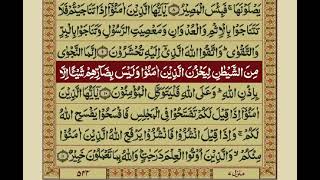 يَصْلَوْنَهَا فَبِئْسَ الْمَصِيْرُ ۝ يٰۤاَيُّهَا الَّذِيْنَ اٰمَنُوْۤا اِذَا تَنَاجَيْتُمْ فَلَا
تَتَنَاجَوْا بِالْاِثْمِ وَالْعُدْوَانِ وَمَعْصِيَتِ الرَّسُوْلِ وَتَنَاجَوْا بِالْبِرِّ
وَالتَّقْوٰى وَاتَّقُوا اللّٰهَ الَّذِيْۤ اِلَيْهِ تُحْشَرُوْنَ ۝ اِنَّمَا النَّجْوٰى
مِنَ الشَّيْطٰنِ لِيَحْزُنَ الَّذِيْنَ اٰمَنُوْا وَلَيْسَ بِضَآرِّهِمْ شَيْئًا اِلَّا
بِاِذْنِ اللّٰهِ وَعَلَى اللّٰهِ فَلْيَتَوَكَّلِ الْمُؤْمِنُوْنَ ۝ يٰۤاَيُّهَا الَّذِيْنَ
اٰمَنُوْۤا اِذَا قِيْلَ لَكُمْ تَفَسَّحُوْا فِى الْمَجٰلِسِ فَافْسَحُوْا يَفْسَحِ اللّٰهُ
لَكُمْ وَاِذَا قِيْلَ انْشُزُوْا فَانْشُزُوْا يَرْفَعِ اللّٰهُ الَّذِيْنَ اٰمَنُوْا
مِنْكُمْ وَالَّذِيْنَ اُوْتُوا الْعِلْمَ دَرَجٰتٍ وَاللّٰهُ بِمَا تَعْمَلُوْنَ خَبِيْرٌ ۝
منزل ٧ ٥٤٣